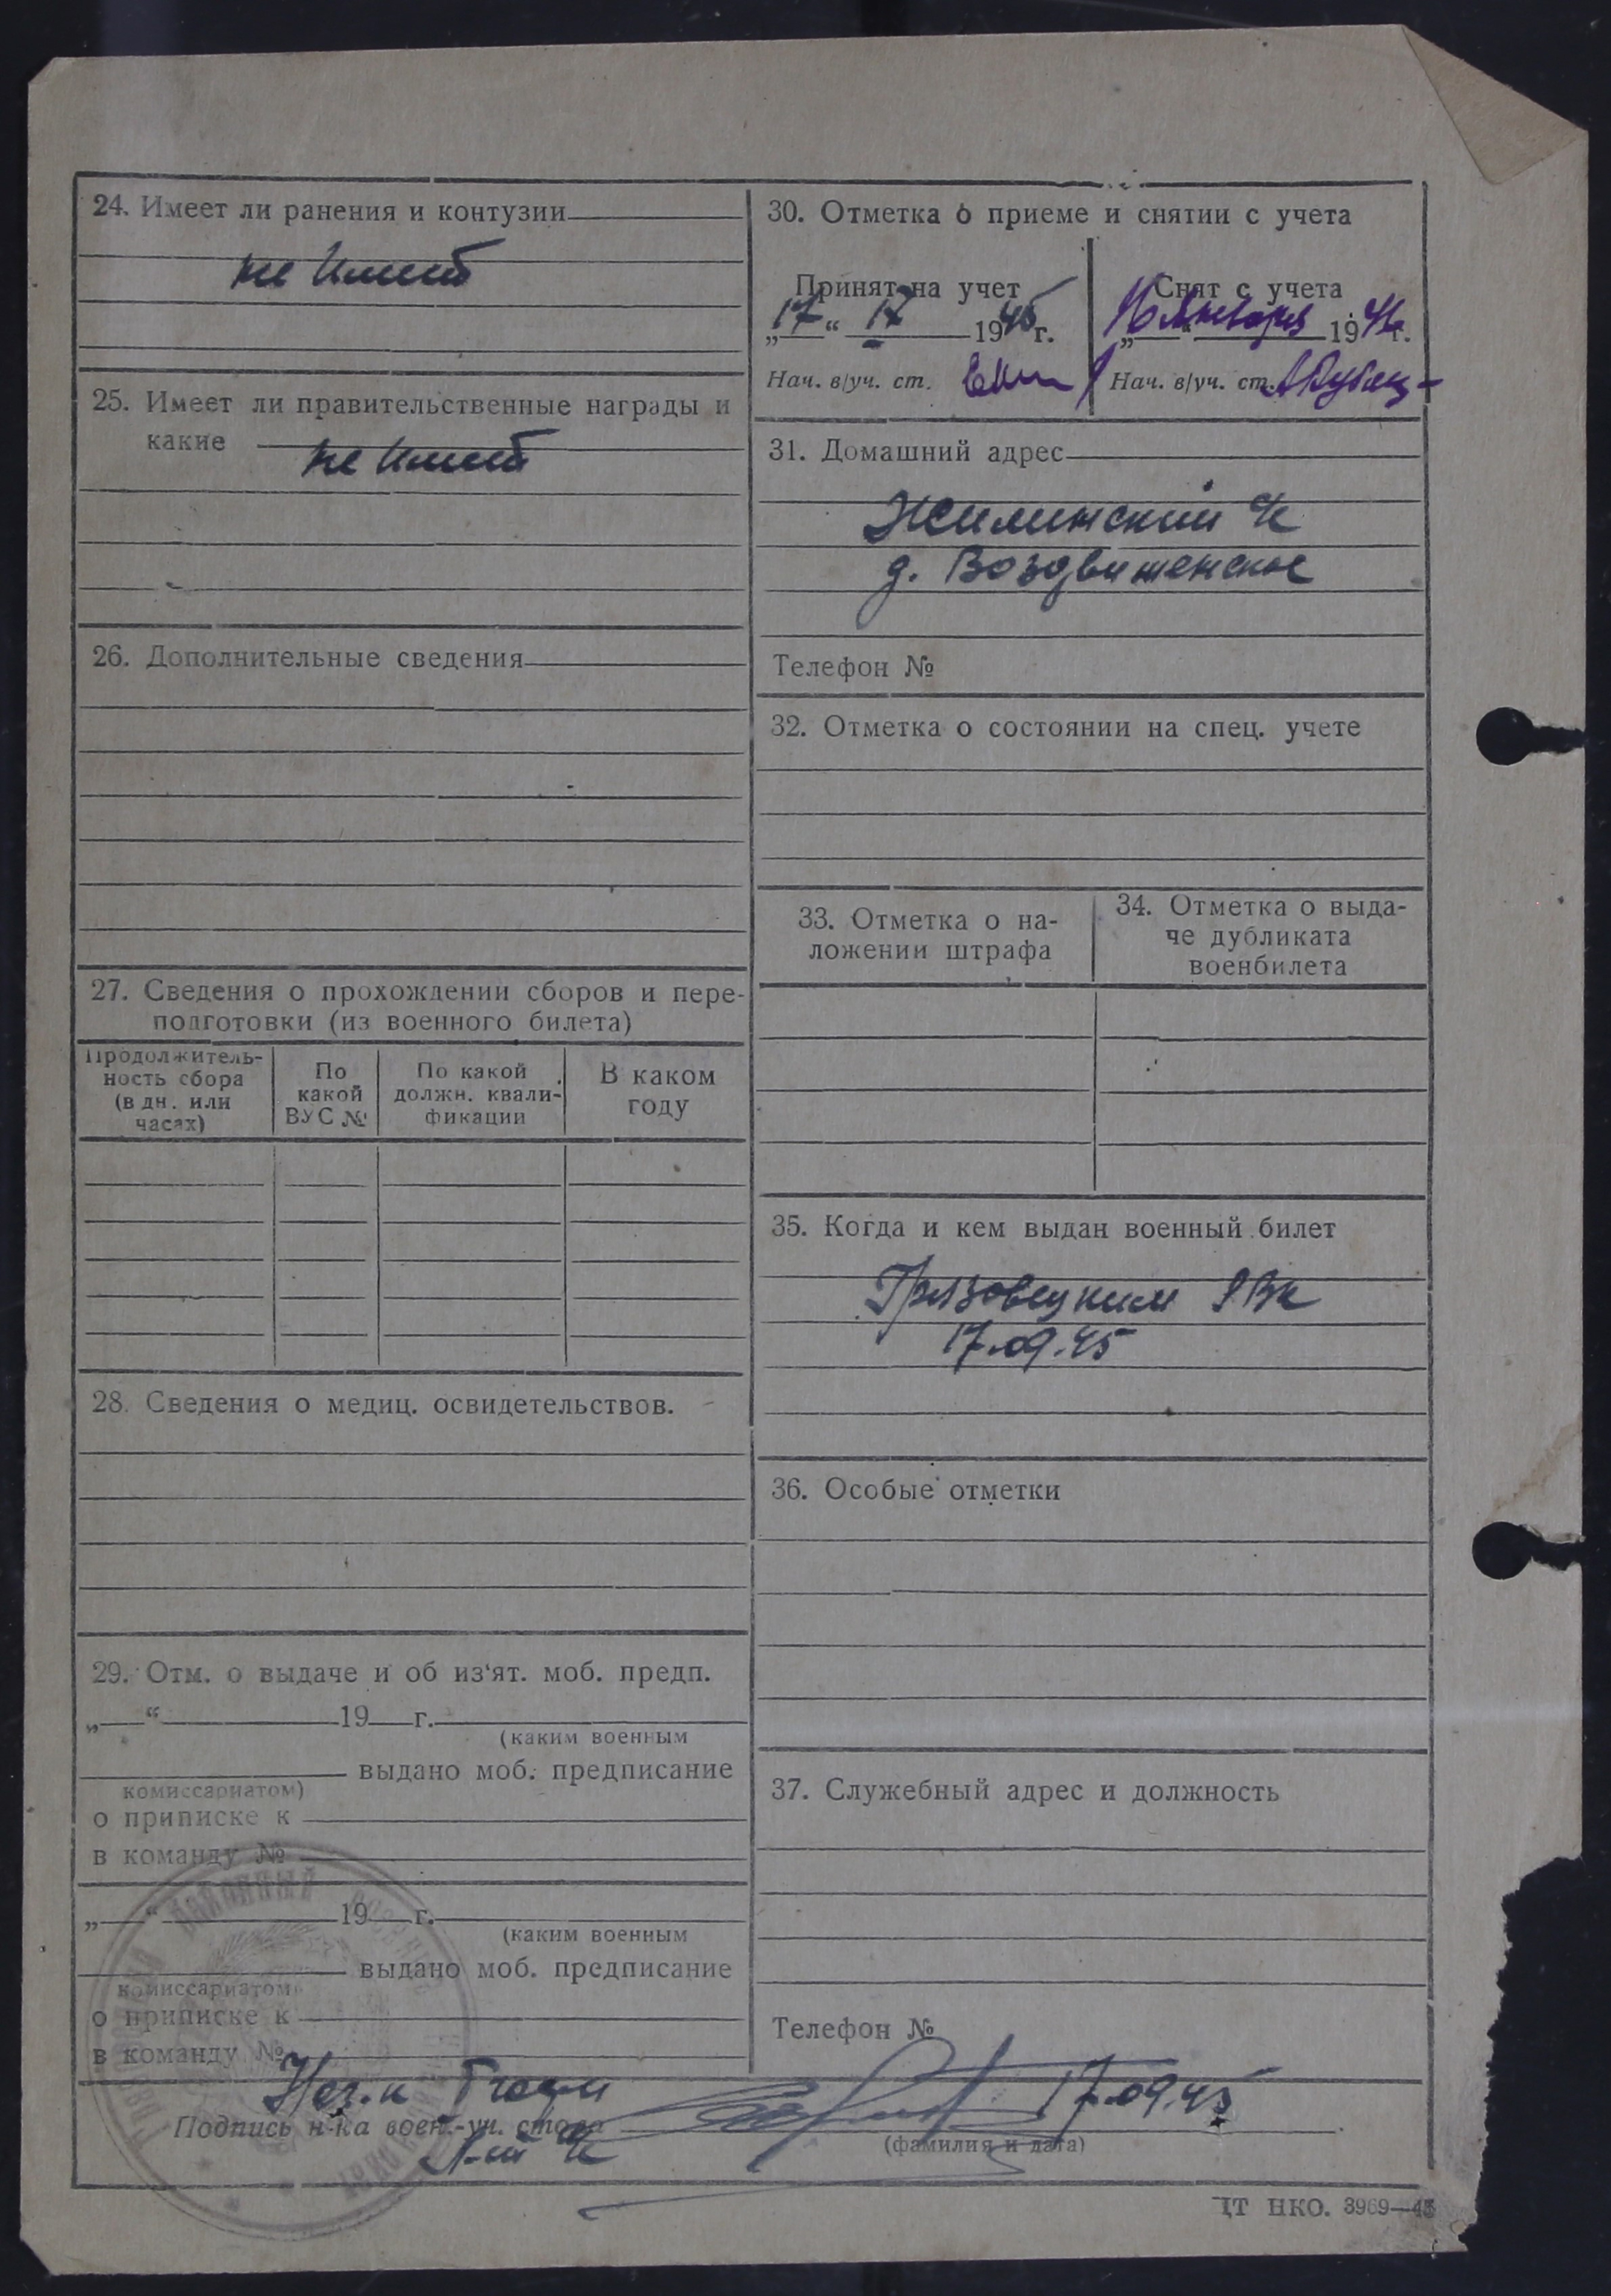 24. Имеет ли ранения и контузии
не имеет
25. Имеет ли правительственные награды и
какие
не имеет
26. Дополнительные сведения
27. Сведения о прохождении сборов и пере-
подготовки (из военного билета)
Продолжитель-
ность сбора
(в дн. или
часах)
По
какой
ВУС №
По какой
должн. квали-
фикации
В каком
году
28. Сведения о медиц. освидетельствов.
29. Отм. о выдаче и об из‘ят. моб. предп.
„ “ 19 г.
(каким военным
выдано моб. предписание
комиссариатом)
о приписке к
в команду №
„ “ 19 г.
(каким военным
выдано моб. предписание
комиссариатом)
о приписке к
в команду №
30. Отметка о приеме и снятии с учета
Принят на учет
„17“ 1945г.
Нач. в/уч. ст.
Снят с учета
„16“ января 194 г.
Нач. в/уч. ст.
31. Домашний адрес
Жилинский с/с
д. Воздвиженское
Телефон №
32. Отметка о состоянии на спец. учете
33. Отметка о на-
ложении штрафа
34. Отметка о выда-
че дубликата
военбилета
35. Когда и кем выдан военный билет
Грязовецким РВК
17.09.45
36. Особые отметки
37. Служебный адрес и должность
Телефон №
Нач.
17.09.45
Подпись н-ка воен.-уч. стола
(фамилия и дата)
ЦТ НКО. 3969—45